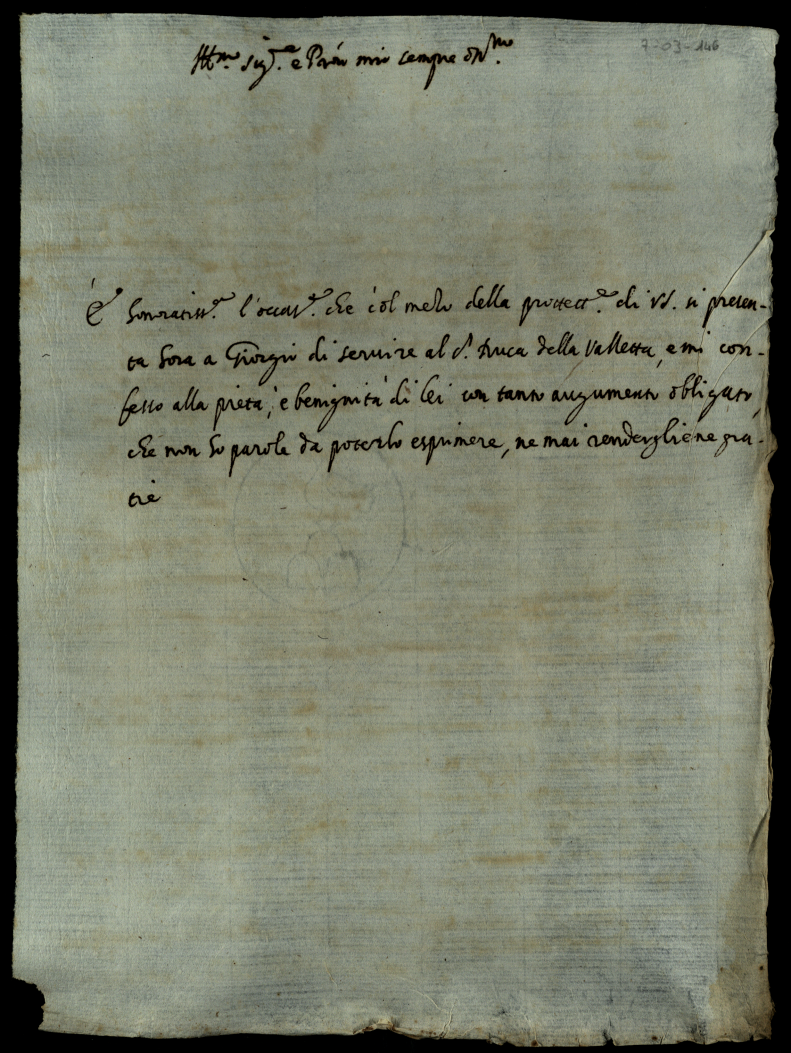 7-03-146
Ill.mo Sig.re e Pron mio sempre oss.mo
È honoratiss.a l'occas.e che col mezo della protect.e di VS. si presen-
ta hora a Giorgio di seruire al S.r Duca della Valletta, e mi con-
fesso alla pietà, e benignità di lei con tanto augumento obligato,
che non ho parole da poterlo esprimere, ne mai rendergliene gra-
tie